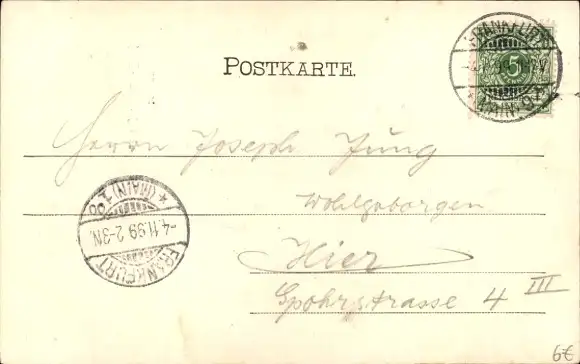 POSTKARTE.
FRANKFURT
5
(MAIN)
Herrn Joseph Jung
Wohlgeboren
Hier
Spohrstrasse 4 III
FRANKFURT
-4.11.99. 2-3N.
* (MAIN) 1 *
6€